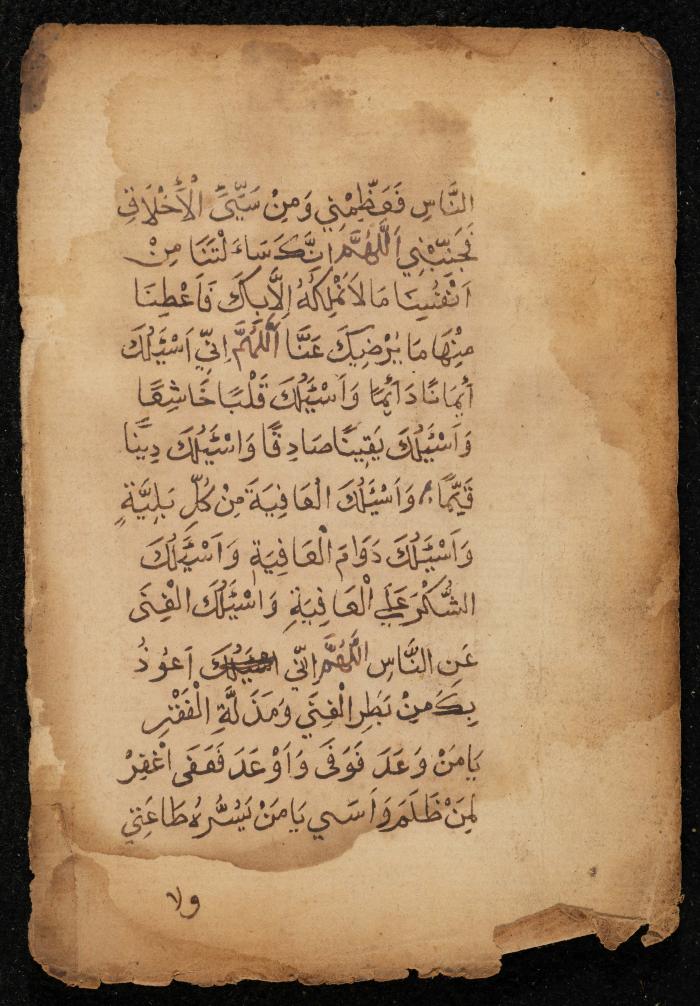 النَّاسِ فَعَظِّمْنِي وَمِنْ سَيِّئِ الْأَخْلَاقِ
فَجَنِّبْنِي اَللَّهُمَّ اِنَّكَ سَاءَلْتَنَا مِنْ
اَنْفُسِنَا مَا لَا نَمْلِكُهُ اِلَّا بِكَ فَاَعْطِنَا
مِنْهَا مَا يُرْضِيكَ عَنَّا اَللَّهُمَّ اِنِّي اَسْئَلُكَ
اَيمَانًا دَائِمًا وَاَسْئَلُكَ قَلْبًا خَاشِعًا
وَاَسْئَلُكَ يَقِينًا صَادِقًا وَاَسْئَلُكَ دِينًا
قَيِّمًا وَاَسْئَلُكَ الْعَافِيَةَ مِنْ كُلِّ بَلِيَّةٍ
وَاَسْئَلُكَ دَوَامَ الْعَافِيَةِ وَاَسْئَلُكَ
الشُّكْرَ عَلَى الْعَافِيَةِ وَاَسْئَلُكَ الْغِنَى
عَنِ النَّاسِ اَللَّهُمَّ اِنِّي اَعُوذُ
بِكَ مِنْ بَطَرِ الْغِنَى وَمَذَلَّةِ الْفَقْرِ
يَا مَنْ وَعَدَ فَوَفَى وَاَوْعَدَ فَعَفَى اغْفِرْ
لِمَنْ ظَلَمَ وَاَسَى يَا مَنْ يَسُرُّهُ طَاعَتِي
ولا